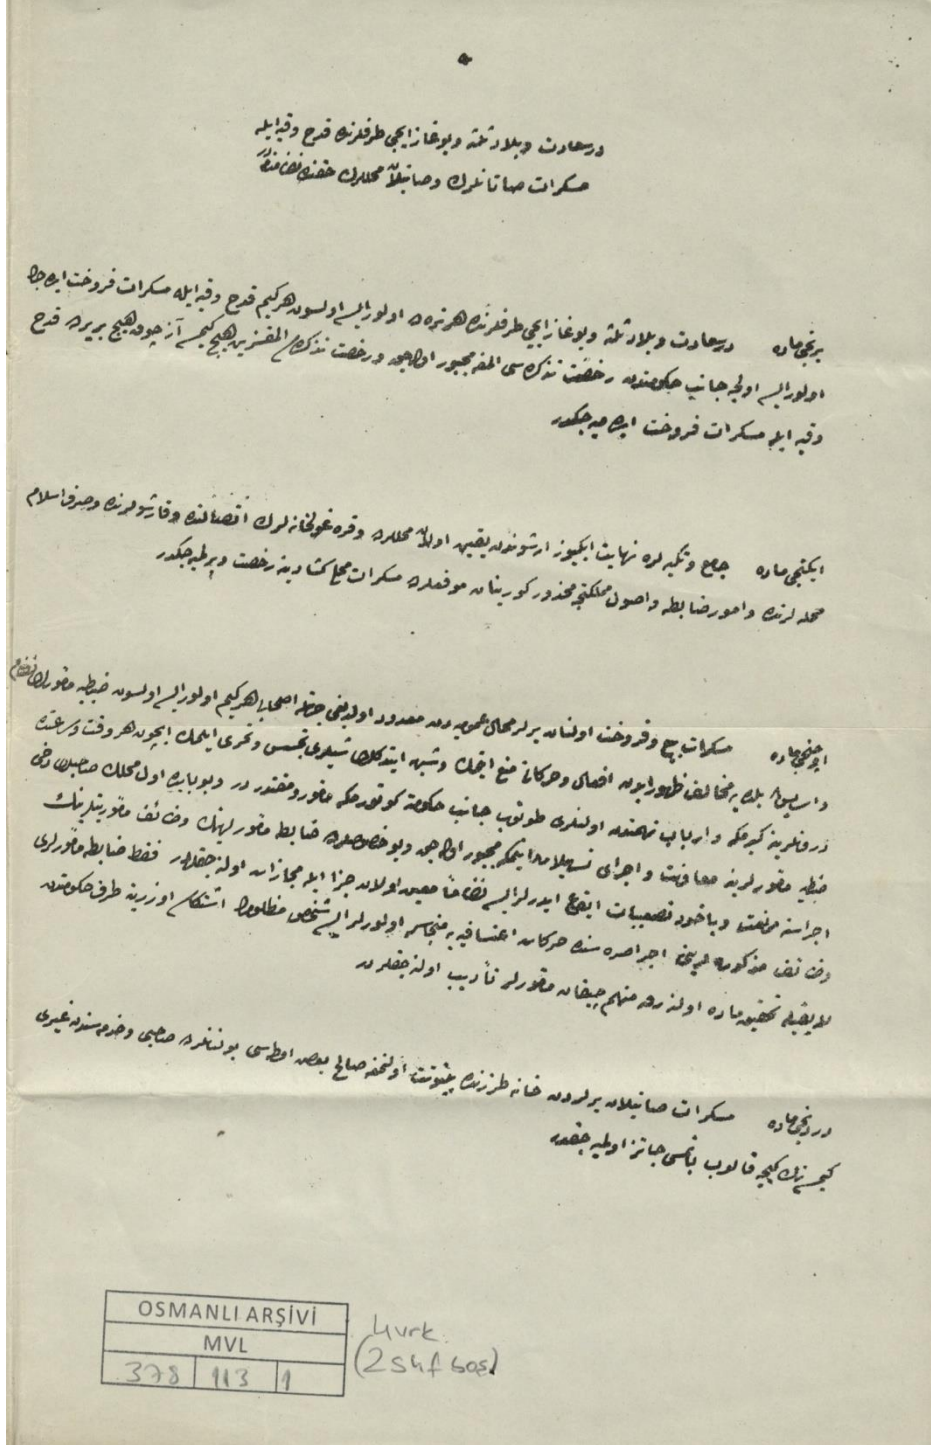 درسعادت و بلاد ثلثه و بوغاز ایچی طرفلرنده قدح و قیه ایله
مسکرات صاتانلرك و صاتیلان محللرك حقنده نظامنامه
برنجی ماده درسعادت و بلاد ثلثه و بوغاز ایچی طرفلرنده هر نره ده اولور ایسه اولسون هر کیم قدح و قیه ایله مسکرات فروخت ایده جك
اولور ایسه اولجه جانب حکومتدن رخصت تذکره سی المغه مجبور اوله جق و رخصت تذکره سی المقسزین هیچ کیمسه آز چوق هیچ بر یرده قدح
و قیه ایله مسکرات فروخت ایده میه جکدر
ایکنجی ماده جامع و تکیه لره نهایت ایکیوز ارشوندن یقین اولان محللرده و قره غولخانه لرك اتصالنده و قارشولرنده و صرف اسلام
محله لرنده و امور ضابطه و اصول مملکتجه محذور کورینان موقعلرده مسکرات محلی کشادینه رخصت ویرلمیه جکدر
اوچنجی ماده مسکرات بیع و فروخت اولنان یرلر محال عمومیه دن معدود اولدیغی جهتله اصحابی هر کیم اولور ایسه اولسون ضبطیه مأمورلری نظام
و اسایش بلدیه مخالف ظهور ایدن افعال و حرکاتی منع ایتمك و شبهه ایتدکلری شیلری تجسس و تحری ایلمك ایچون هر وقت و ساعتده
درونلرینه کیرمکه و ارباب تهمتدن اولنلری طوتوب جانب حکومته کوتورمکه مأذون و مقتدر در و بو بابده اول محللك صاحبلری دخی
ضبطیه مأمورلرینه معاونت و اجرای تسهیلات ایتمکه مجبور اوله جق و بو خصوصلرده ضابطه مأمورلرینك وظائف مأموریتلرینك
اجراسنه ممانعت و یاخود تصعیبات ایقاع ایدرلر ایسه نظاماً معین اولان جزا ایله مجازات اولنه جقلردر فقط ضابطه مأمورلری
وظائف مذکوره لرینی اجرا صره سنده حرکات اعتسافیه یه متجاسر اولورلر ایسه شخص مظلومك اشتکاسی اوزرینه طرف حکومتدن
تحقیق ماده اولنه رق متهم چیقان مأمورلر تأدیب اولنه جقلردر
دردنجی ماده مسکرات صاتیلان یرلردن خانه طرزنده بیتوتت اولنمغه صالح بعض اوطه سی بولنانلرده صاحبی و خدمه سندن غیری
کیمسه نك کیجه قالوب یاتمسی جائز اولمیه جقدر
OSMANLI ARŞİVİ
MVL
378 113 1
4 vrk.
(2 shf boş)